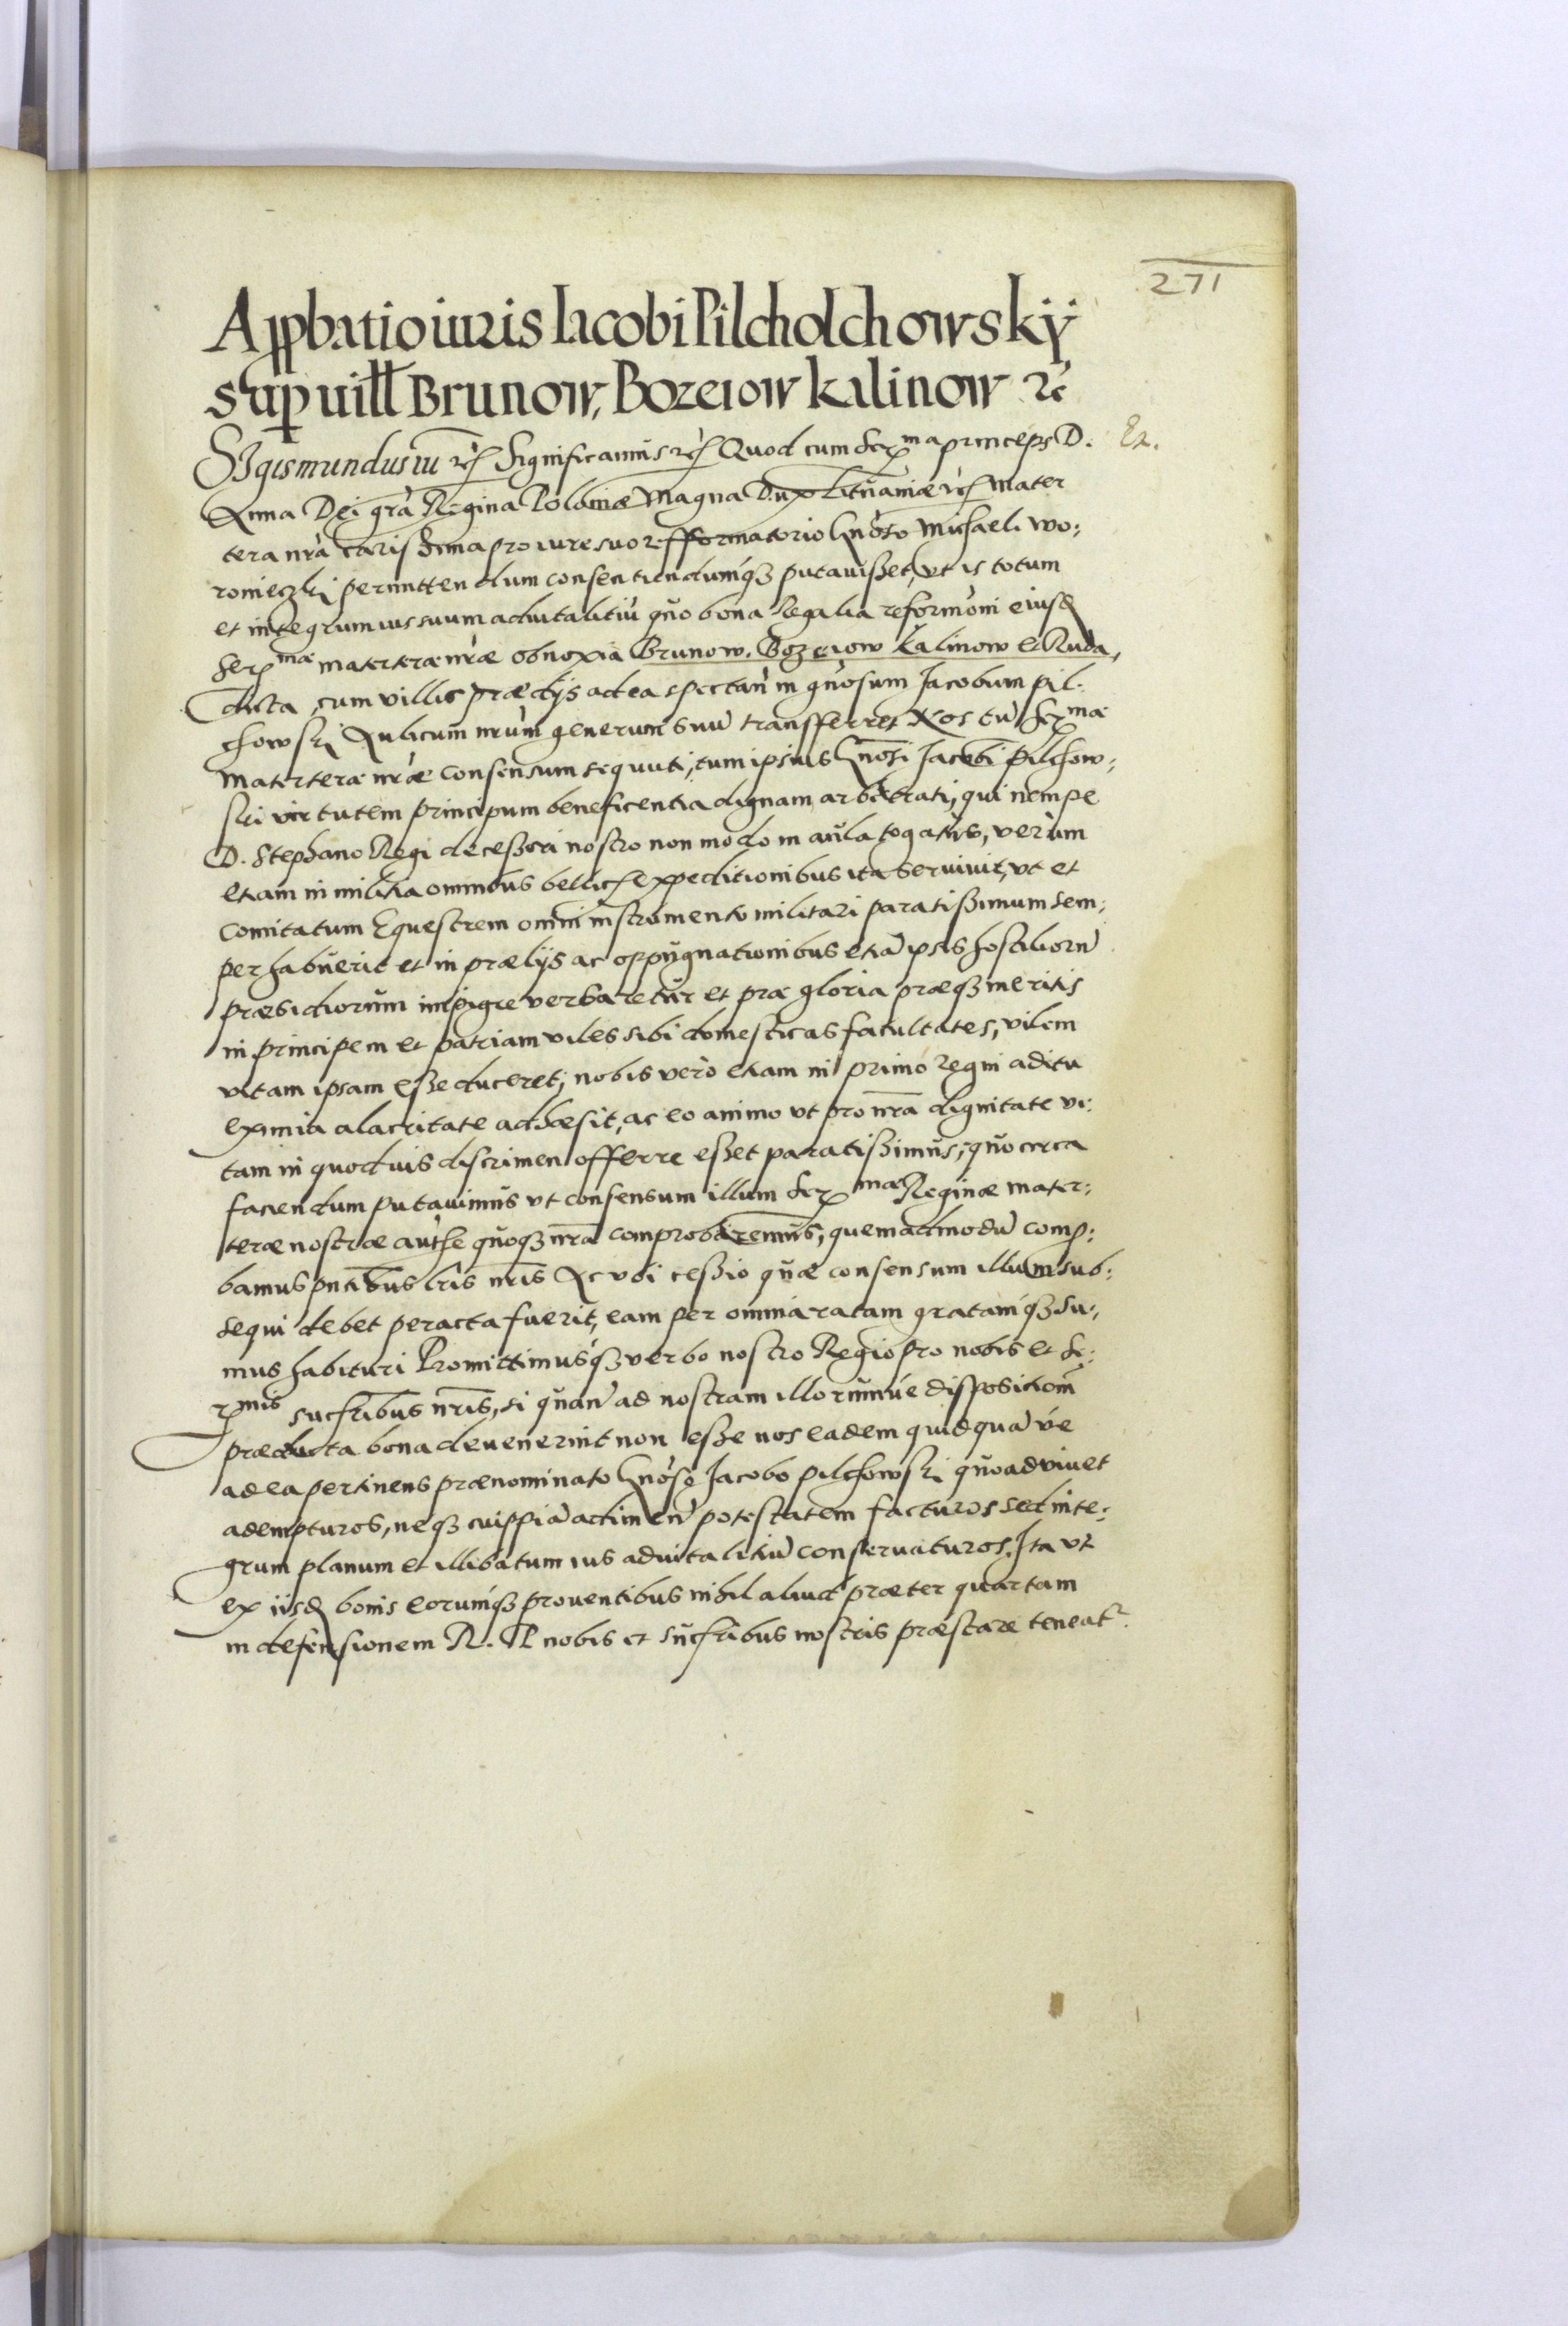 271
Appbatio iuris Iacobi Pilcholchowskÿ
sup vill Brunow, Bozeiow Kalinow etc
SIgismundus iii etc Significamus etc Quod cum Serma princeps D. Ex.
Anna Dei grã Regina Poloniæ Magna Dux Lituaniæ etc Mater
tera nrã carissima pro iure suo refformatorio Gnoso Michaeli Wo:
ronieczki permittendum consentiendumq putavisset, ut is totum
et integrum ius suum advitalitiũ quo bona Regalia reformoni eiusd
Sermæ materteræ nræ obnoxia Brunow. Bozeiow Kalinow et Ruda,
dicta, cum villis prædijs ad ea spectañ in gnosum Jacobum Pil:
chowski Aulicum nrum generum suũ transferret Nos tũ Sermæ
materteræ nræ consensum sequuti, tum ipsius Gnosi Jacobi Pilchow:
ski virtutem principum beneficentia dignam arbitrati, qui nempe
D. Stephano Regi decessori nostro non modo in aula togatus, verùm
etiam in militia omnibus bellicis expeditionibus ita servivit, ut et
comitatum Equestrem omni instrumento militari paratissimum sem:
per habuerit et in prælijs ac oppugnationibus etiã ipsis hostiliorũ
præsidiorum impigre versaretur et præ gloria præq meritis
in principem et patriam viles sibi domesticas facultates, vilem
vitam ipsam esse duceret; nobis verò etiam in primo regni aditu
eximia alacritate adhæsit, ac eo animo ut pro nrã dignitate vi:
tam in quoduis discrimen offerre esset paratissimus; quocirca
faciendum putavimus ut consensum illum Sermæ Reginæ mater:
teræ nostræ authe quoq nrã comprobaremus; quemadmodũ comp:
bamus pñtibus lris nris Ac ubi cessio quæ consensum illum sub:
sequi debet peracta fuerit, eam per omnia ratam gratamq su:
mus habituri Promittimusq verbo nostro Regio pro nobis et Se:
rmis sucribus nris, si quañ ad nostram illorumue dispositioñ
prædicta bona devenerint non esse nos eadem quidquã ve
ad ea pertinens prænominato Gnoso Jacobo Pilchowski quoad vivet
adempturos, neq cuippiã adimeñ potestatem facturos sed inte:
grum planum et illibatum ius advitalitiũ conservaturos. Ita ut
ex iisd bonis eorumq proventibus nihil aliud præter quartam
in defensionem R. P nobis et sucribus nostris præstare teneatr